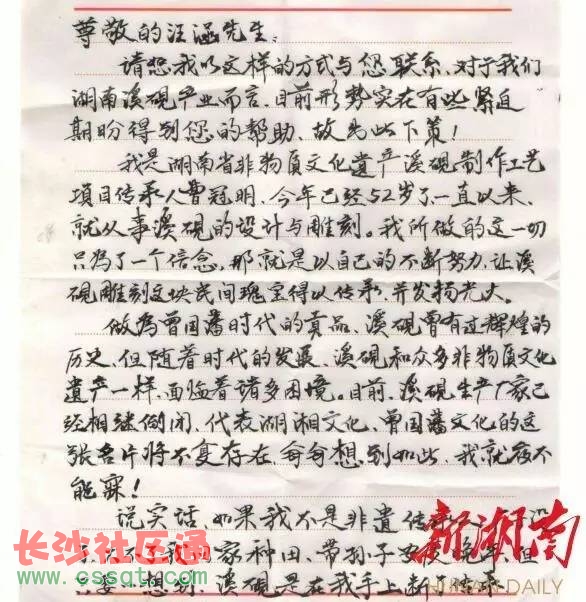 尊敬的汪涵先生:
请恕我以这样的方式与您联系、对于我们
湖南溪砚产业而言、目前形势实在有些紧迫
期盼得到您的帮助、故出此下策!
我是湖南省非物质文化遗产溪砚制作工艺
项目传承人曹冠明、今年已经52岁了一直以来、
就从事溪砚的设计与雕刻。我所做的这一切
只为了一个信念、那就是以自己的不断努力、让溪
砚雕刻这块民间瑰宝得以传承、并发扬光大。
做为曾国藩时代的贡品、溪砚曾有过辉煌的
历史、但随着时代的发展、溪砚和众多非物质文化
遗产一样、面临着诸多困境。目前、溪砚生产厂家已
经相继倒闭、代表湖湘文化、曾国藩文化的这
张名片将不复存在、每每想到如此、我就夜不
能寐!
说实话、如果我不是非遗传
回家种田、带孙子 但
想到、溪砚是在我手上
新湖南
HUNAN DAILY
长沙社区通
www.cssqt.com